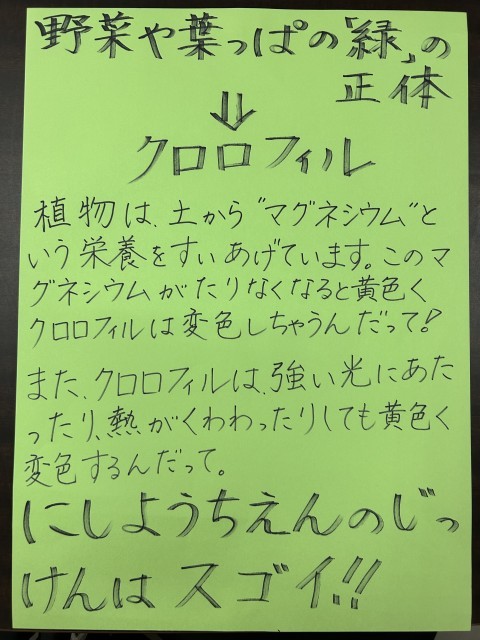 野菜や葉っぱの「緑」の
正体
⇓
クロロフィル
植物は、土から"マグネシウム"と
いう栄養をすいあげています。このマ
グネシウムがたりなくなると黄色く
クロロフィルは変色しちゃうんだって!
また、クロロフィルは、強い光にあた
ったり、熱がくわわったりしても黄色く
変色するんだって。
にしようちえんのじっ
けんは スゴイ!!